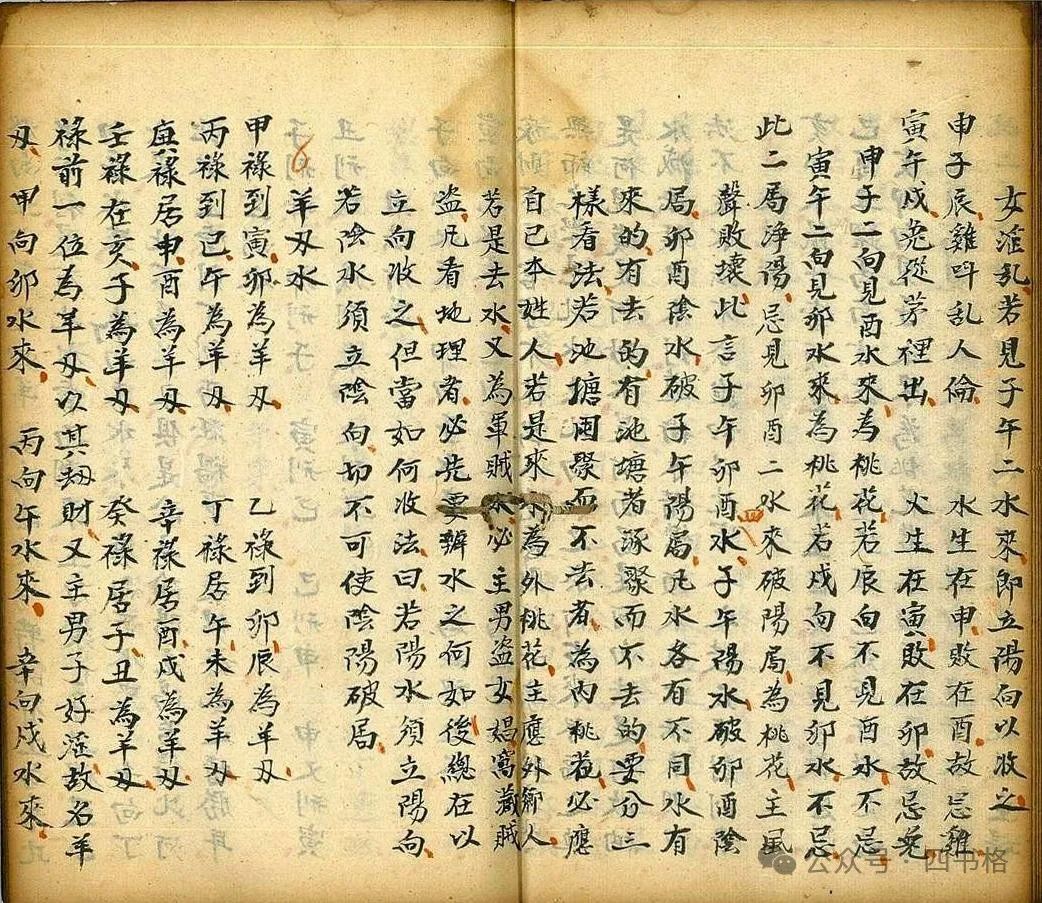 女淫乱若見子午二水來即立陽向以收之
申子辰雞呌乱人倫　水生在申敗在酉故忌雞
寅午戌兔從茅裡出　火生在寅敗在卯故忌兔
申子二向見酉水來為桃花若辰向不見酉水不忌
寅午二向見卯水來為桃花若戌向不見卯水不忌
此二局浄陽忌見卯酉二水來破陽局為桃花主風
聲敗壞此言子午卯酉水子午陽水破卯酉陰
局卯酉陰水破子午陽局凡水各有不同水有
來的有去的有池塘者涿聚而不去的要分三
樣看法若池塘囬聚而不去者為內桃花必應
自己本姓人若是來水為外桃花主應外鄉人
若是去水又為軍賊水必主男盜女娼窩藏賊
盜凡看地理者必先要辦水之何如後總在以
立向收之但當如何收法曰若陽水須立陽向
若陰水須立陰向切不可使陰陽破局
羊刃水
甲祿到寅卯為羊刃　乙祿到卯辰為羊刃
丙祿到巳午為羊刃　丁祿居午未為羊刃
庚祿居申酉為羊刃　辛祿居酉戌為羊刃
壬祿在亥子為羊刃　癸祿居子丑為羊刃
祿前一位為羊刃以其刼財又主男子好淫故名羊
刃甲向卯水來　丙向午水來　辛向戌水來
公众号·四书格